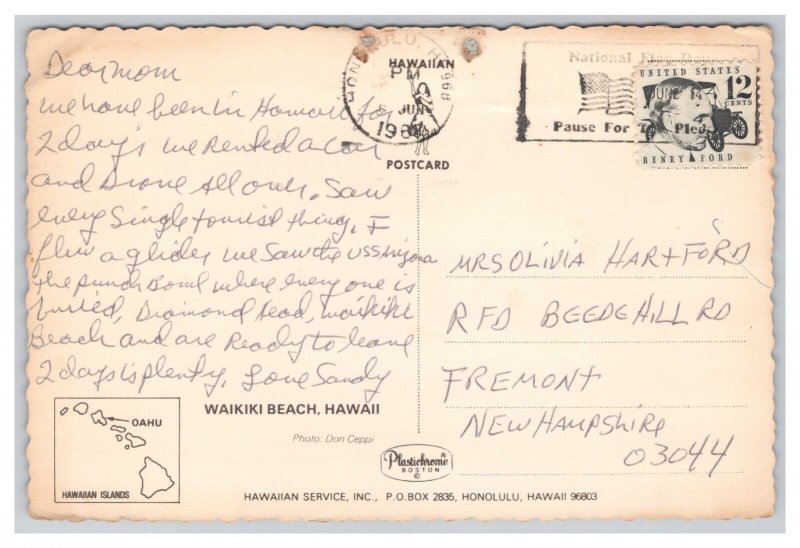 HAWAIIAN
POSTCARD
HONOLULU, H 968
PM
JUN
198
National Flag Day
JUNE 14
Pause For T Pled
UNITED STATES
12
CENTS
HENRY FORD
Dear mom
we have been in Hawaii for
2 day's we Rented a car
and Drove All over. Saw
every Single tourist thing, I
flew a glider we Saw the USS Arizona
the punch Bowl where every one is
buried, Diamond Head, waikiki
Beach and are Ready to leave
2 days is plenty, Love Sandy
MRS OLIVIA HARTFORD
RFD BEEDE HILL RD
FREMONT
NEW HAMPSHIRE
03044
OAHU
HAWAIIAN ISLANDS
WAIKIKI BEACH, HAWAII
Photo: Don Ceppi
Plastichrome®
BOSTON
©
HAWAIIAN SERVICE, INC., P.O.BOX 2835, HONOLULU, HAWAII 96803